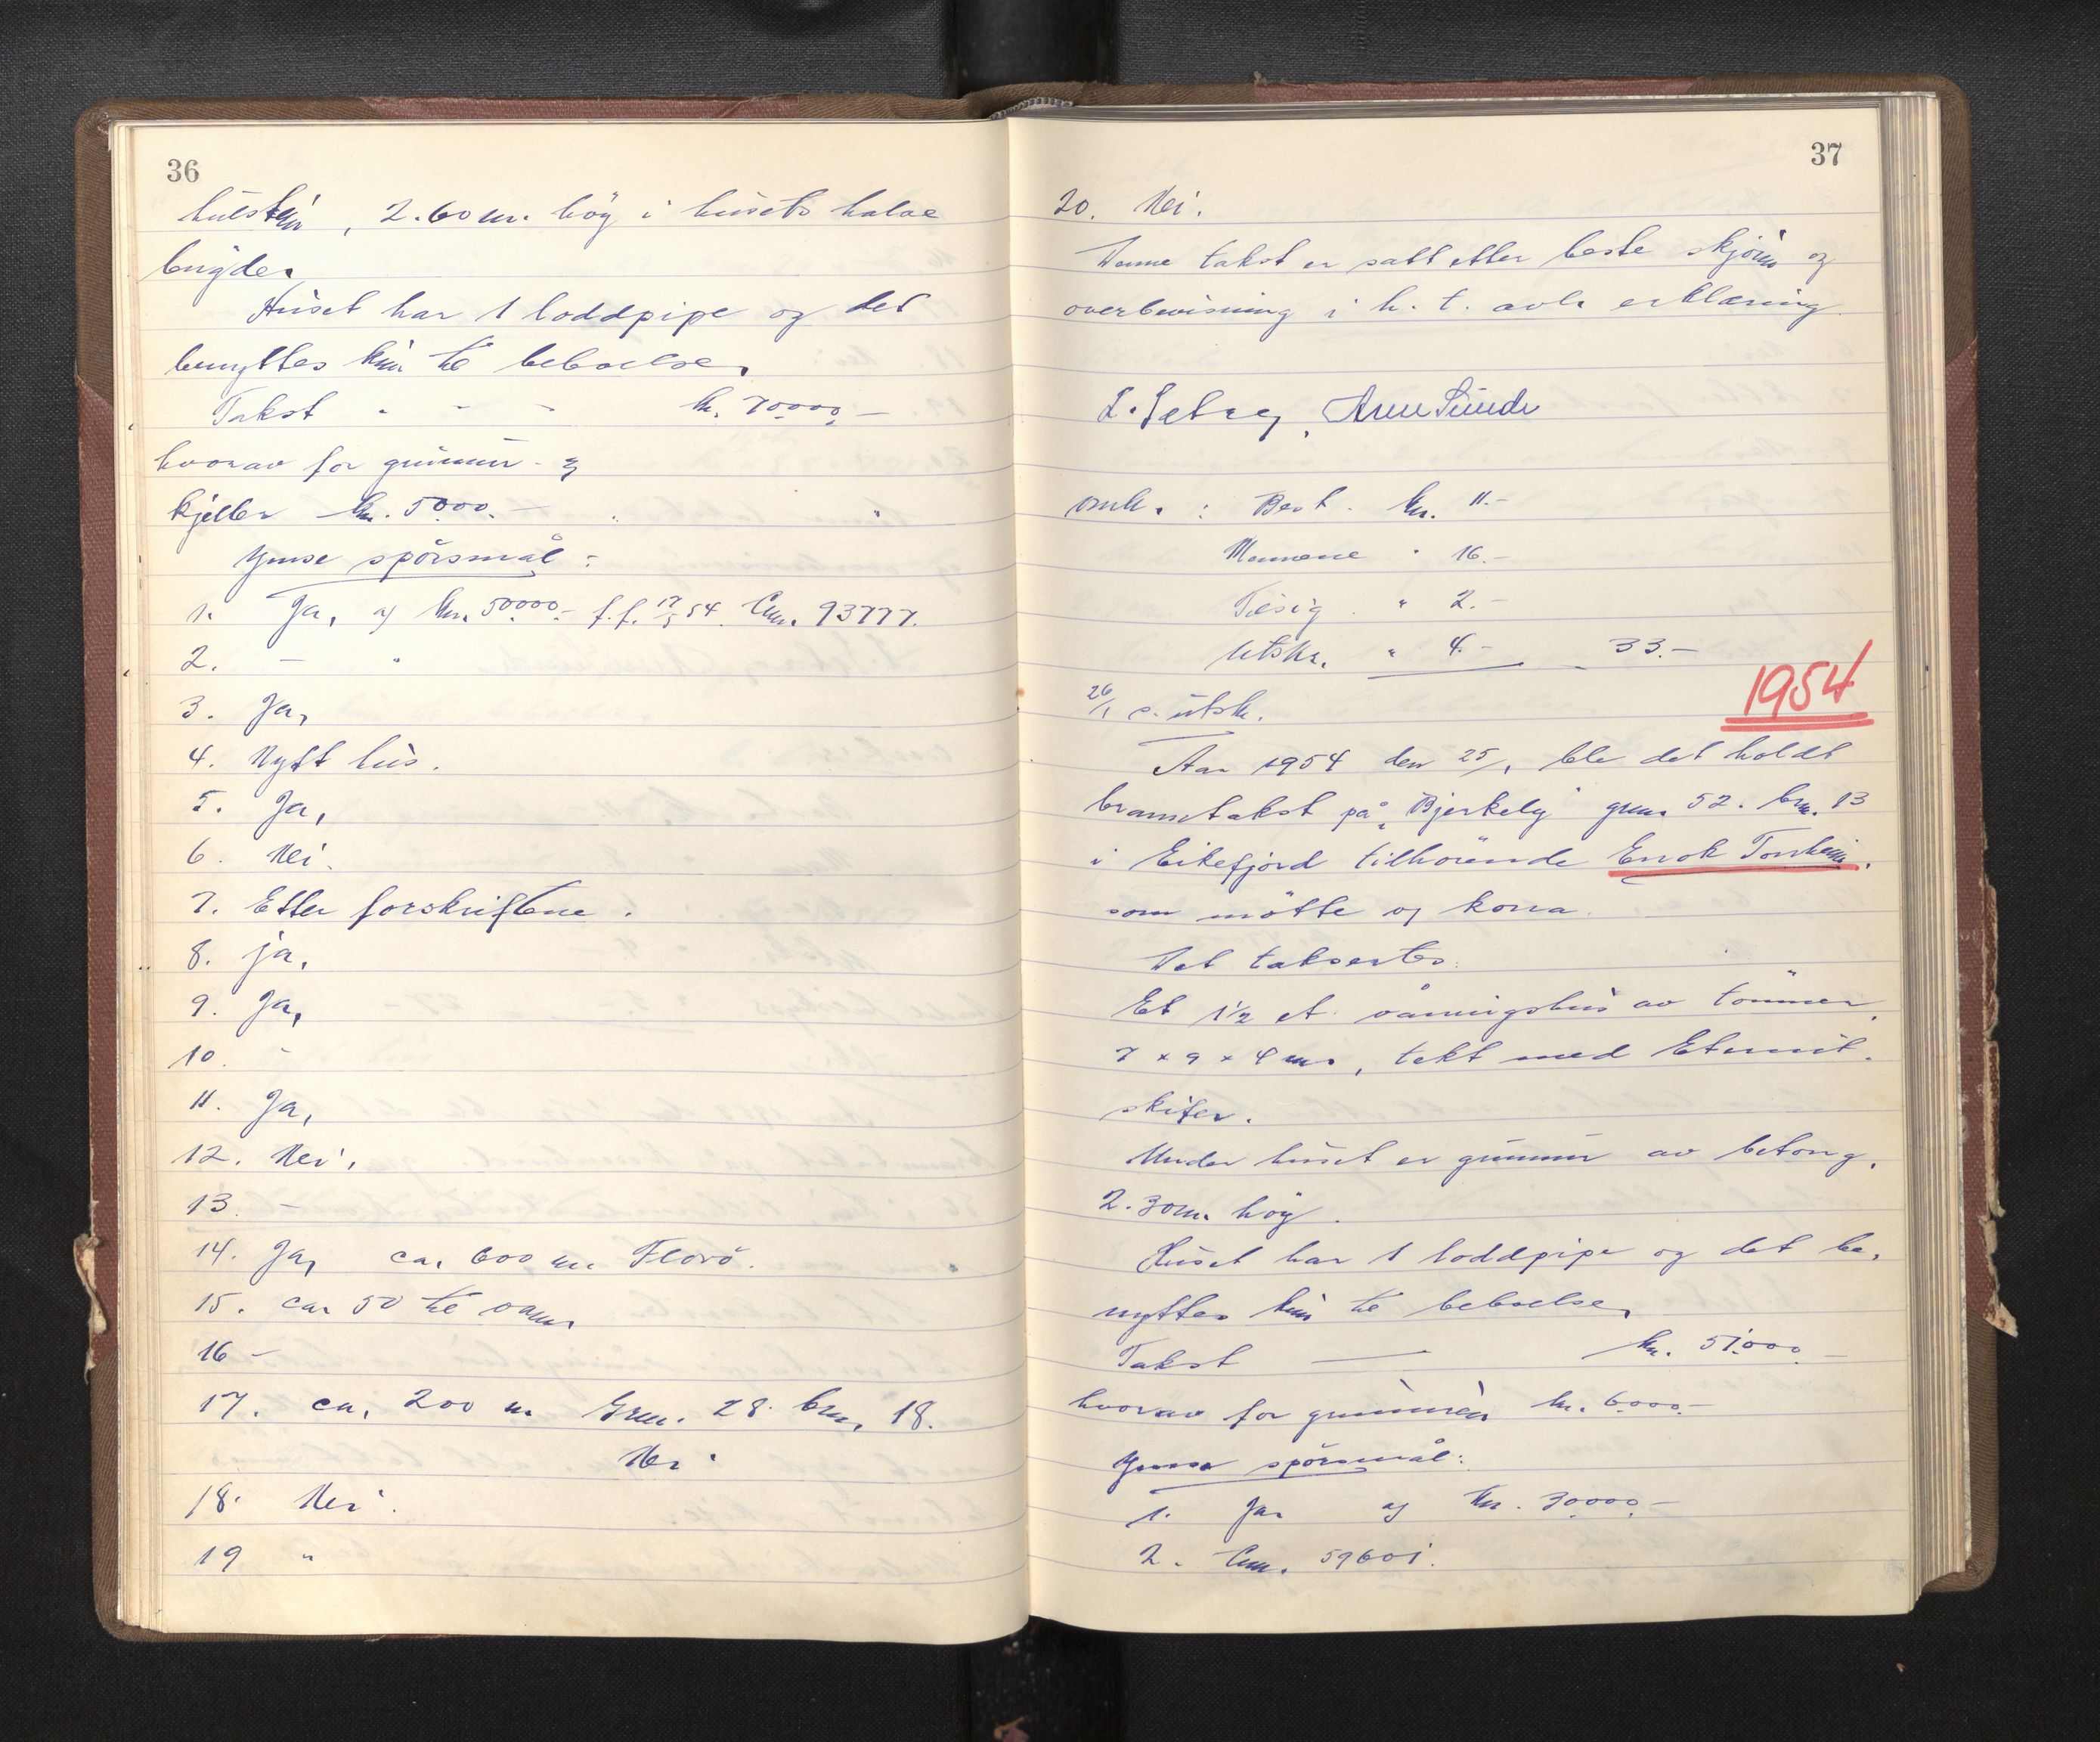 36
hulstein, 2.60 m. høy i husets halve
brigde.
Huset har 1 loddpipe og det
benyttes kun til beboelse.
Takst - - - kr. 70000.-
hvorav for grunnmur og
kjeller kr. 5000.-
Ymse spörsmål:
1. Ja, af kr. 50000.- f.f. 17/5 54. Cnr. 93777.
2. - "
3. Ja,
4. Nytt hus.
5. Ja,
6. Nei.
7. Etter forskriftene.
8. ja.
9. Ja,
10. -
11. Ja,
12. Nei.
13. -
14. Ja, ca. 600 m. Florö.
15. ca. 50 til vann
16 -
17. ca. 200 m Gnr. 28. bnr. 18.
Nei.
18. Nei.
19 "
37
20. Nei.
Denne takst er satt etter beste skjönn og
overbevisning i h. t. avl. erklæring.
Arne Sunde
Omk. : Best. kr. 11.-
Mennene " 16.-
Tilsig. " 2.-
Utskr. " 4.- - 33.-
26/1 s. utsk.
1954
Aar 1954 den 25/1 ble det holdt
branntakst på "Bjerkely" gnr. 52. bnr. 13
i Eikefjord tilhörende Enok Tonheim.
som mötte og kona.
Det taksertes:
Et 1½ et. våningshus av tömmer.
7 x 9 x 4 m., tekt med Eternit-
skifer.
Under huset er grunnmur av betong,
2.30 m. höy.
Huset har 1 loddpipe og det be-
nyttes kun til beboelse.
Takst — kr. 51.000.-
hvorav for grunnmuren kr. 6000.-
Ymse spörsmål:
1. Ja, af kr. 30000.-
2. Cnr. 59601.